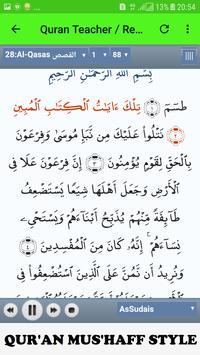 20:54
Quran Teacher / Re...
28:Al-Qasas القصص 1 88
بِسْمِ اللَّهِ الرَّحْمَٰنِ الرَّحِيمِ
طسٓمٓ ۝١ تِلْكَ ءَايَٰتُ ٱلْكِتَٰبِ ٱلْمُبِينِ
۝٢ نَتْلُوا۟ عَلَيْكَ مِن نَّبَإِ مُوسَىٰ وَفِرْعَوْنَ
بِٱلْحَقِّ لِقَوْمٍ يُؤْمِنُونَ ۝٣ إِنَّ فِرْعَوْنَ عَلَا فِى
ٱلْأَرْضِ وَجَعَلَ أَهْلَهَا شِيَعًا يَسْتَضْعِفُ
طَآئِفَةً مِّنْهُمْ يُذَبِّحُ أَبْنَآءَهُمْ وَيَسْتَحْىِۦ
نِسَآءَهُمْ ۚ إِنَّهُۥ كَانَ مِنَ ٱلْمُفْسِدِينَ ۝٤
وَنُرِيدُ أَن نَّمُنَّ عَلَى ٱلَّذِينَ ٱسْتُضْعِفُوا۟ فِى
AsSudais
QUR'AN MUS'HAFF STYLE